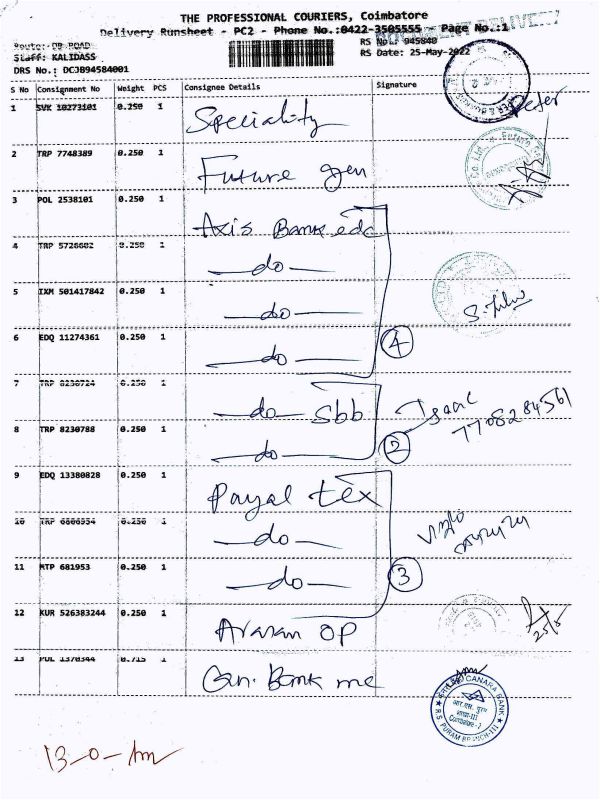 THE PROFESSIONAL COURIERS, Coimbatore
Delivery Runsheet - PC2 - Phone No.:0422-3505555 Page No.:1
DOCUMENT DELIVERY
Route: DB ROAD
RS No.: 945840
Staff: KALIDASS
RS Date: 25-May-2022
DRS No.: DCJB94584001
S No Consignment No Weight PCS Consignee Details Signature
1 SVK 10273101 0.250 1 Speciality Peter
2 TRP 7748389 0.250 1 Future gen
3 POL 2538101 0.250 1 Axis Bank edc
4 TRP 5726602 0.250 1 —do—
5 IXM 501417842 0.250 1 —do—
6 EDQ 11274361 0.250 1 —do— 4
7 TRP 8230724 0.250 1 —do— Sbb Isaac
8 TRP 8230788 0.250 1 —do— 2 7708284561
9 EDQ 13380828 0.250 1 Payal tex
10 TRP 6806954 0.250 1 —do—
11 MTP 681953 0.250 1 —do— 3
12 KUR 526383244 0.250 1 Aravan OP 25/5
13 POL 1370344 0.715 1 Can. Bank me
CANARA BANK
आर.एस. पुरम
शाखा-III
R.S. PURAM BRANCH-III
13-0-